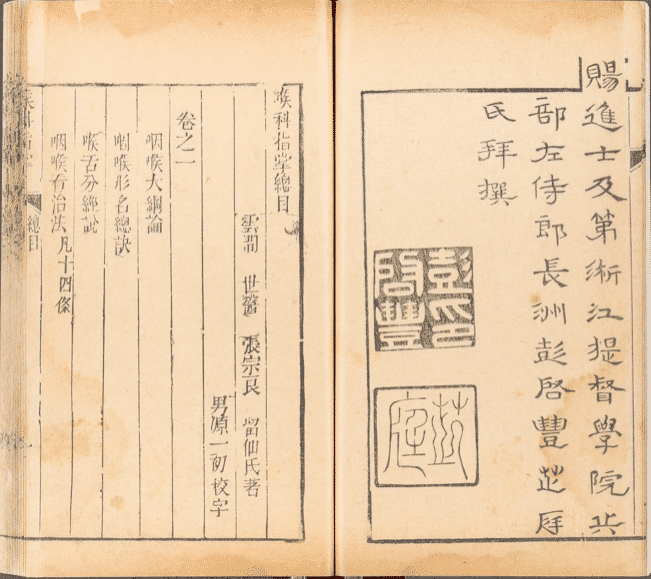 賜進士及第浙江提督學院兵
部左侍郎長洲彭啓豐芝庭
氏拜撰
彭印啓豐
芝庭
喉科指掌總目
雲間 世醫 張宗良 留仙氏著
男原一初校字
卷之一
咽喉大綱論
咽喉形名總訣
喉舌分經說
咽喉看治法凡十四條
喉科指掌 總目